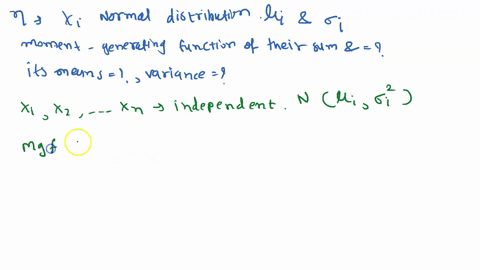 η → Xi Normal distribution. μi & σi
moment - generating function of their sum & = ?
its means = ?, variance = ?
X1, X2, --- Xn → independent. N (μi, σi²)
Mgf